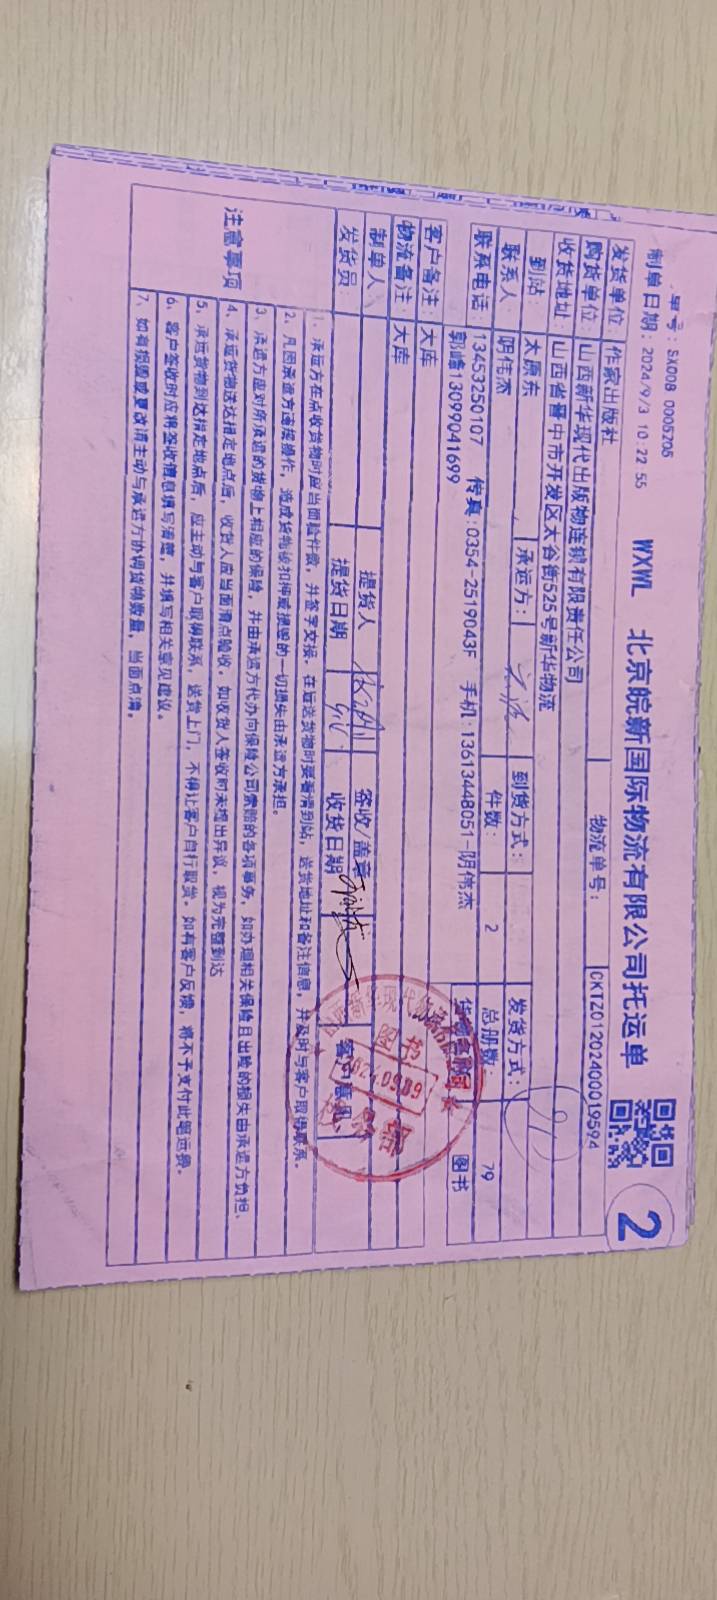 单号：SX008 0005206
制单日期：2024/9/3 10:22 55
WXWL 北京皖新国际物流有限公司托运单
2
物流单号： CKTZ01202400019594
发货单位 作家出版社
购货单位： 山西新华现代出版物连锁有限责任公司
收货地址： 山西省晋中市开发区太谷街525号新华物流
到站： 太原东 承运方： 到货方式： 发货方式：
联系人： 阴伟杰 件数： 2 总册数： 79
联系电话： 13453250107 传真：0354-2519043F 手机：13613448051-阴伟杰
郭峰13099041699
图书
客户备注： 大库
物流备注： 大库
制单人 提货人 签收/盖章
发货员： 提货日期 9/5 收货日期 客户意见
图书
注意事项
1、承运方在点收货物时应当面验件数，并签字交接，在运送货物时要看清到站，送货地址和备注信息，并及时与客户取得联系。
2、凡因承运方违规操作，造成货物被扣押或损毁的一切损失由承运方承担。
3、承运方应对所承运的货物上相应的保险，并由承运方代办向保险公司索赔的各项事务，如办理相关保险且出险的损失由承运方负担。
4、承运货物送达指定地点后，收货人应当面清点验收，如收货人签收时未提出异议，视为完整到达
5、承运货物到达指定地点后，应主动与客户取得联系，送货上门，不得让客户自行取货，如有客户反馈，将不予支付此笔运费。
6、客户签收时应将签收信息填写清楚，并填写相关意见建议。
7、如有损毁或更改请主动与承运方协调货物数量，当面点清。